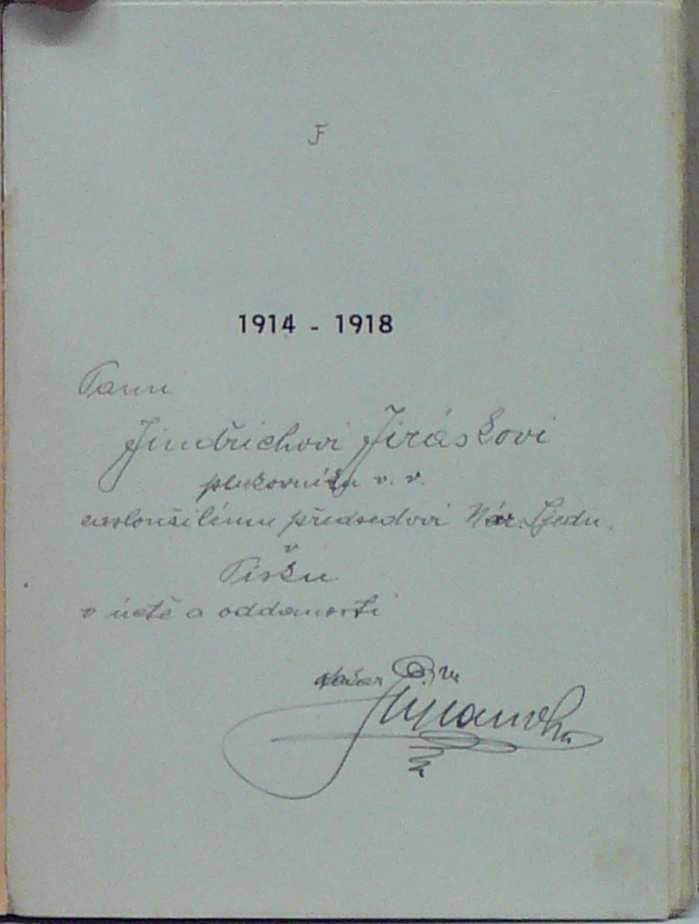 F
1914 - 1918
Panu
Jindřichovi Jiráskovi
plukovníku v. v.
zasloužilému předsedovi Nár. Sjedn.
v
Písku
v úctě a oddanosti